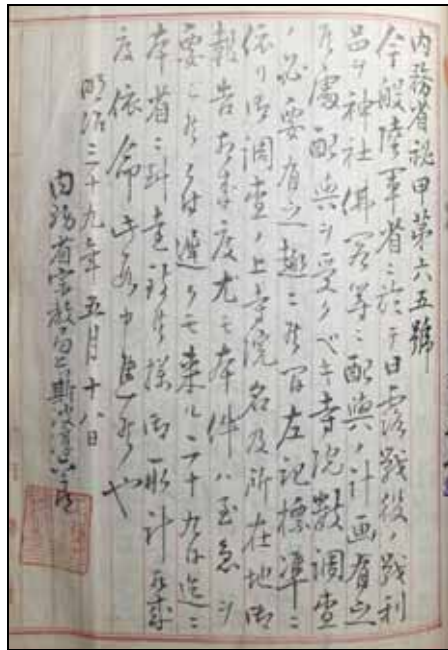 内務省秘甲第六五號
今般陸軍省ニ於テ日露戰役ノ戰利
品ヲ神社佛閣等ニ配與ノ計画有之
候處配與ヲ受クベキ寺院數調査
ノ必要有之趣ニ候間左記標準ニ
依リ御調査ノ上寺院名及所在地御
報告相成度尤モ本件ハ至急ヲ
要シ候ニ付遲クモ来ル二十九日迄ニ
本省ニ到達候様御取計相成
度依命此段申進候也
明治三十九年五月十八日
内務省宗教局長斯波淳六郎